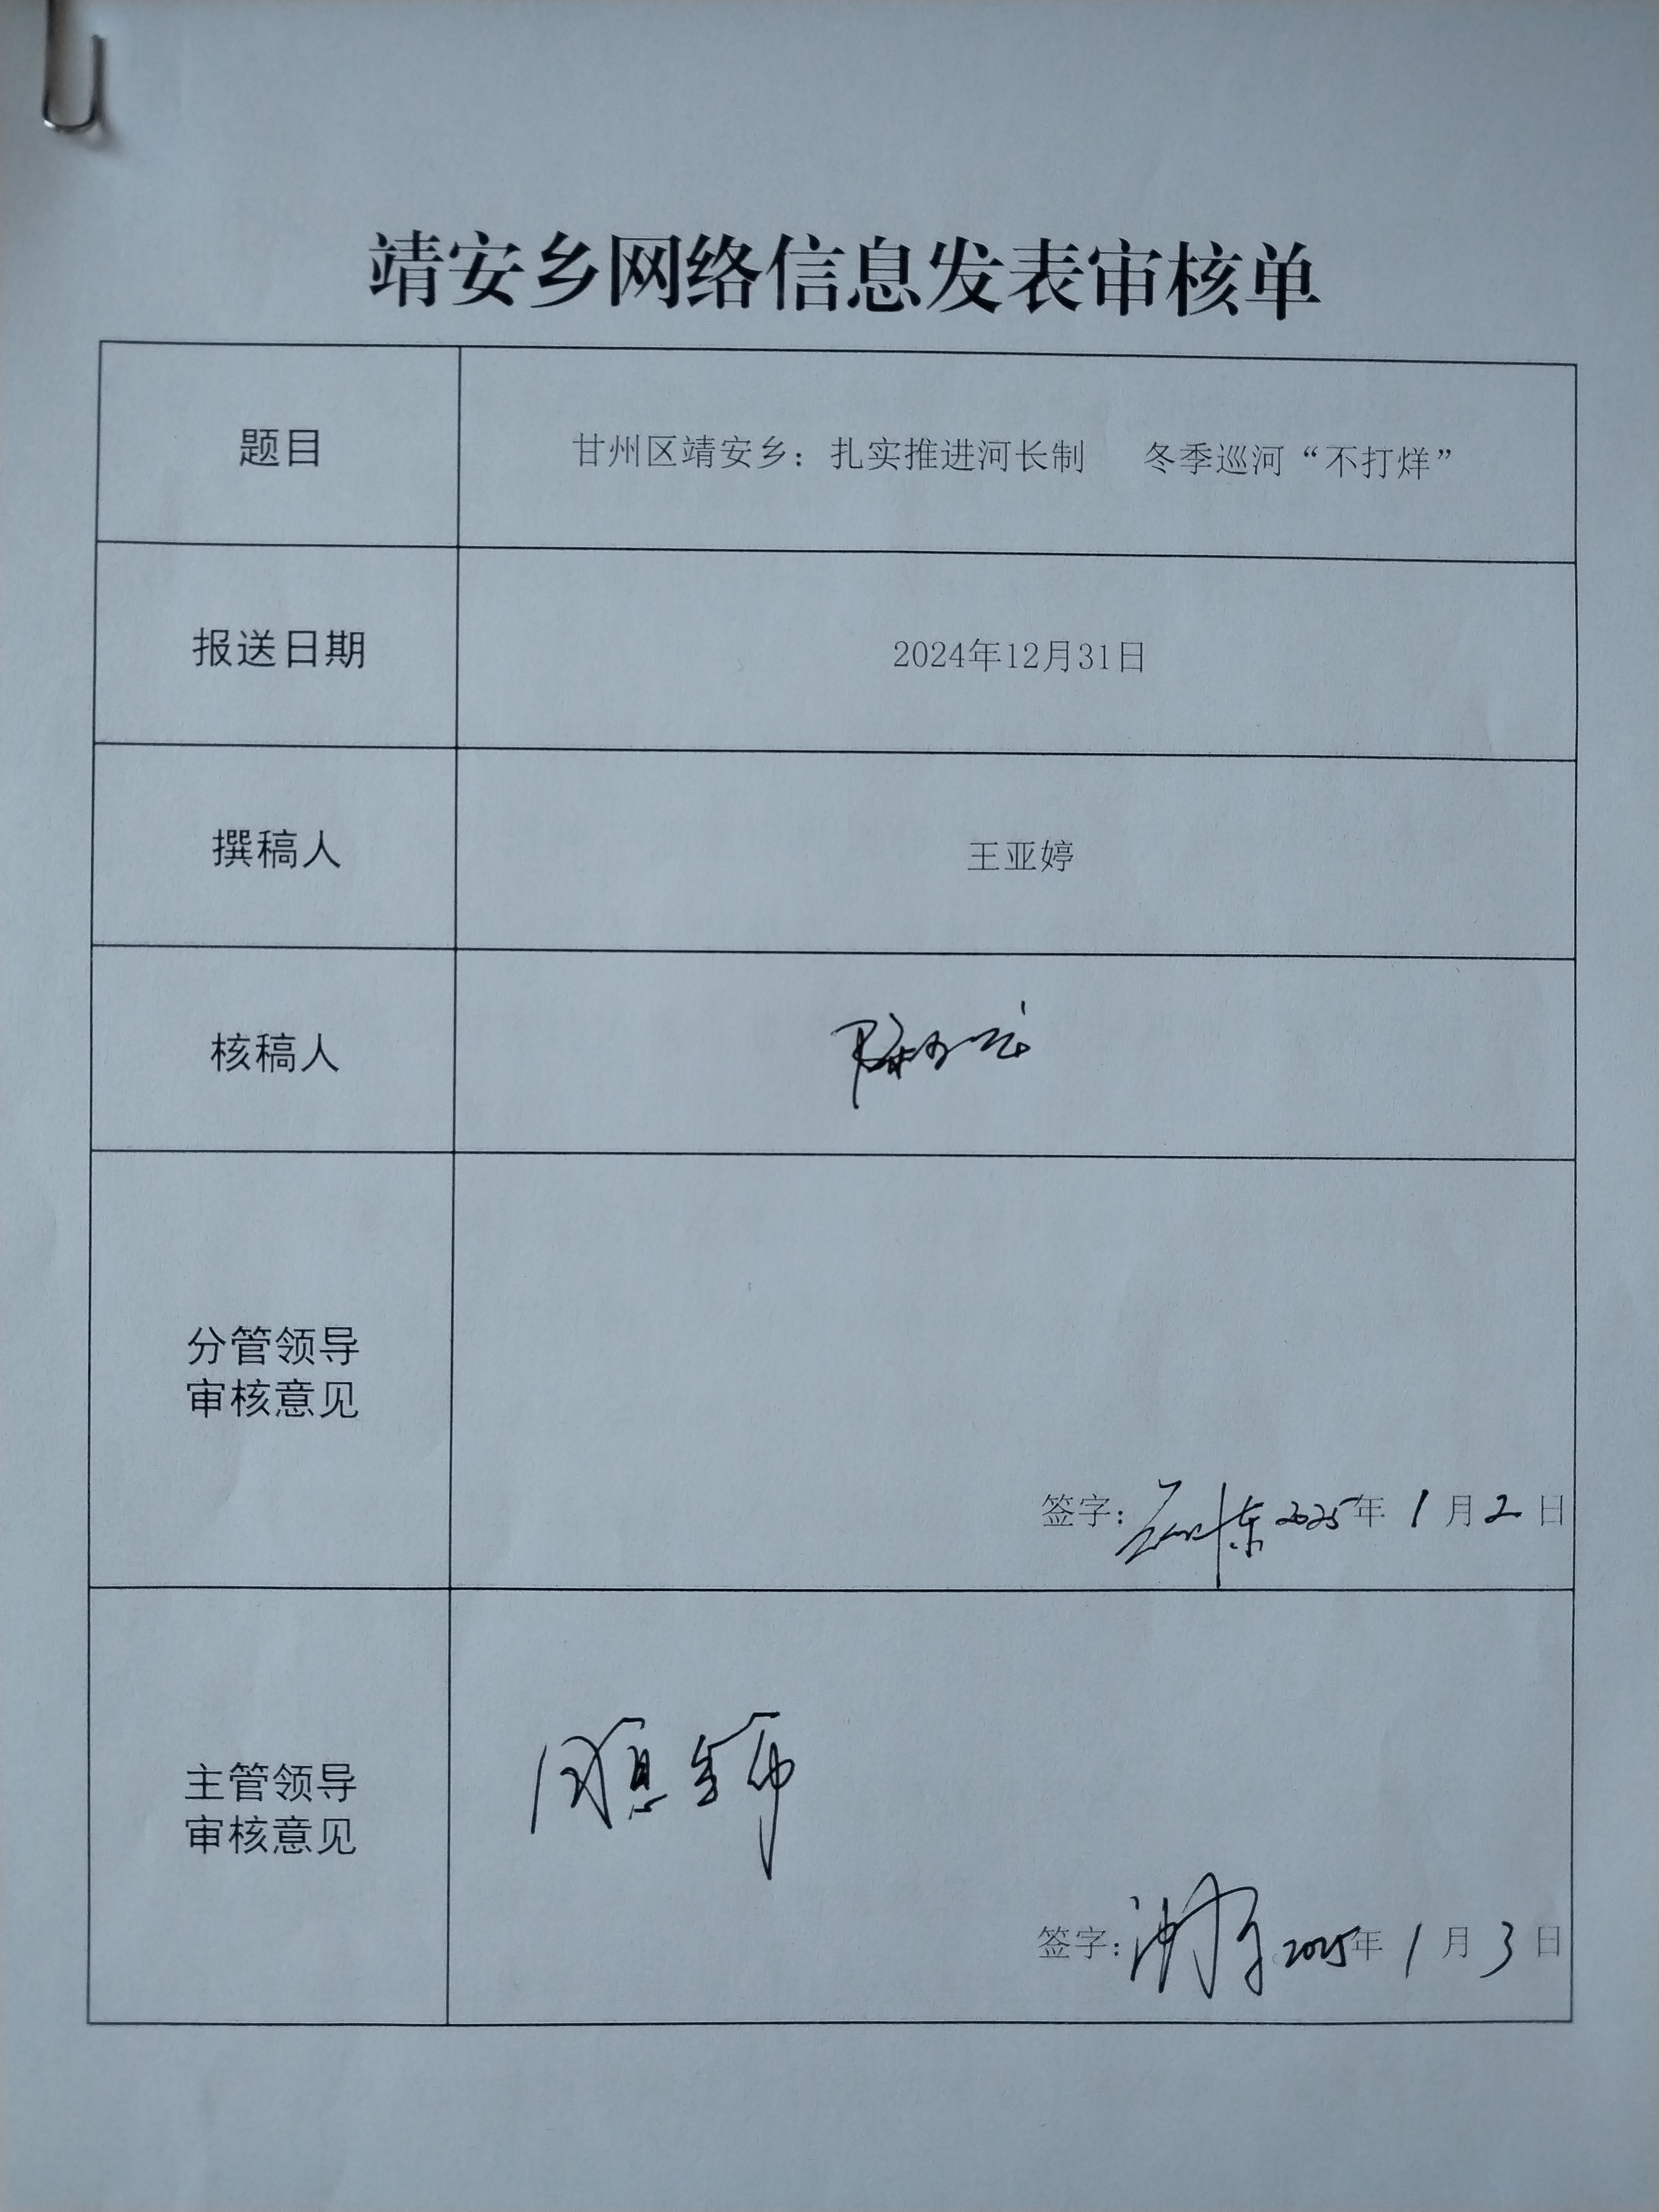 靖安乡网络信息发表审核单
题目
甘州区靖安乡：扎实推进河长制 冬季巡河“不打烊”
报送日期
2024年12月31日
撰稿人
王亚婷
核稿人
分管领导
审核意见
签字： 2025年1月2日
主管领导
审核意见
同意发布
签字： 2025年1月3日